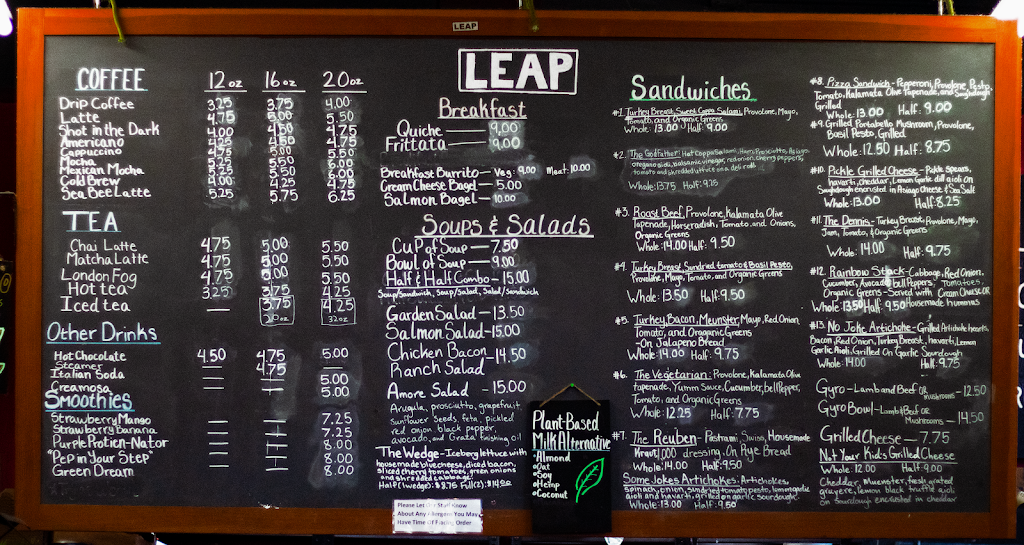 LEAP
LEAP
COFFEE 12 oz 16 oz 20 oz
Drip Coffee 3.25 3.75 4.00
Latte 4.75 5.00 5.50
Shot in the Dark 4.00 4.50 4.75
Americano 4.25
Cappuccino 4.75 5.00 5.50
Mocha 5.25 5.50 6.00
Mexican Mocha
Cold Brew 4.00 4.25 4.75
Sea Bee Latte 5.25 5.75 6.25
TEA
Chai Latte 4.75 5.00 5.50
Matcha Latte 4.75 5.00 5.50
London Fog 4.75 5.00 5.50
Hot tea 3.25 3.75 4.25
Iced tea — 3.75 4.25
20oz 32oz
Other Drinks
Hot Chocolate 4.50 4.75 5.00
Steamer — 4.75
Italian Soda — — 5.00
Creamosa — — 5.00
Smoothies
Strawberry Mango — — 7.25
Strawberry Banana — — 7.25
Purple Protien-Nator — — 8.00
"Pep in Your Step" — — 8.00
Green Dream — — 8.00
Breakfast
Quiche — 9.00
Frittata — 9.00
Breakfast Burrito - Veg: 9.00 Meat: 10.00
Cream Cheese Bagel - 5.00
Salmon Bagel - 10.00
Soups & Salads
Cup of Soup — 7.50
Bowl of Soup — 9.00
Half & Half Combo - 15.00
Soup/Sandwich, Soup/Salad, Salad/Sandwich
Garden Salad - 13.50
Salmon Salad - 15.00
Chicken Bacon - 14.50
Ranch Salad
Amore Salad - 15.00
Arugula, prosciutto, grapefruit,
Sunflower Seeds, feta, pickled
red onion, black pepper,
avocado, and Grata finishing oil
The Wedge - Iceberg lettuce with
housemade blue cheese, diced bacon,
sliced cherry tomatoes, green onions
and shredded cabbage.
Half (1 wedge): $8.75 Full (2): $14.00
Please Let Our Staff Know
About Any Allergens You May
Have Time Of Order
Plant-Based
Milk Alternative
•Almond
•Oat
•Soy
•Hemp
•Coconut
Sandwiches
#1. Turkey Breast, Sweet Coppa Salami, Provolone, Mayo,
Tomato, and Organic Greens
Whole: 13.00 Half: 9.00
#2. The Godfather: Hot Coppa Salami, Ham, Prosciutto, Asiago,
oregano aioli, balsamic vinegar, red onion, cherry peppers,
tomato and shredded lettuce on a deli roll
Whole: 13.75 Half: 9.75
#3. Roast Beef, Provolone, Kalamata Olive
Tapenade, Horseradish, Tomato, and Onions,
Organic Greens
Whole: 14.00 Half: 9.50
#4. Turkey Breast Sundried tomato & Basil Pesto,
Provolone, Mayo, Tomato, and Organic Greens
Whole: 13.50 Half: 9.50
#5. Turkey, Bacon, Meunster, Mayo, Red Onion
Tomato, and Oraganic Greens
- On Jalapeno Bread
Whole: 14.00 Half: 9.75
#6. The Vegetarian: Provolone, Kalamata Olive
Tapenade, Yumm Sauce, Cucumber, bell Pepper,
Tomato, and Organic Greens
Whole: 12.25 Half: 7.75
#7. The Reuben - Pastrami, Swiss, Housemade
Kraut, 1000 dressing, On Rye Bread
Whole: 14.00 Half: 9.50
Some Jokes Artichokes: Artichokes,
spinach, onion, sundried tomato pesto, lemon garlic
aioli and havarti, grilled on garlic sourdough
Whole: 13.00 Half: 9.50
#8. Pizza Sandwich - Pepperoni, Provolone, Pesto,
Tomato, Kalamata Olive Tapenade, and Sourdough
Grilled
Whole: 13.00 Half: 9.00
#9. Grilled Portabello Mushroom, Provolone,
Basil Pesto, Grilled
Whole: 12.50 Half: 8.75
#10. Pickle Grilled Cheese - Pickle Spears,
havarti, cheddar, Lemon Garlic dill aioli on
Sourdough encrusted in Asiago Cheese & Sea Salt
Whole: 13.00 Half: 8.25
#11. The Dennis - Turkey Breast, Provolone, Mayo,
Jam, Tomato, & Organic Greens
Whole: 14.00 Half: 9.75
#12. Rainbow Stack - Cabbage, Red Onion,
Cucumber, Avocado, bell Peppers, Tomatoes,
Organic Greens - Served with Cream Cheese OR
Whole: 13.50 Half: 9.50 Housemade Hummus
#13. No Joke Artichoke - Grilled Artichoke hearts,
Bacon, Red Onion, Turkey Breast, havarti, Lemon
Garlic Aioli, Grilled On Garlic Sourdough
Whole: 14.00 Half: 9.75
Gyro - Lamb and Beef OR mushrooms 12.50
Gyro Bowl - Lamb & Beef OR
Mushrooms — 14.50
Grilled Cheese - 7.75
Not Your Kids Grilled Cheese
Whole: 12.00 Half: 9.00
Cheddar, muenster, fresh grated
gruyere, lemon black truffle aioli
on sourdough encrusted in cheddar